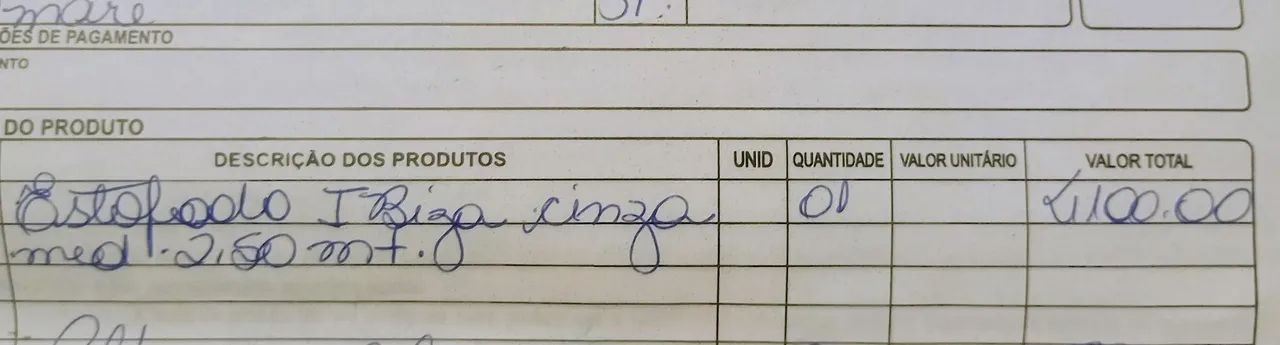 mare 51.
ÕES DE PAGAMENTO
NTO
DO PRODUTO
DESCRIÇÃO DOS PRODUTOS UNID QUANTIDADE VALOR UNITÁRIO VALOR TOTAL
Estofado IBiza cinza 01 4100.00
med. 2,50 mt.